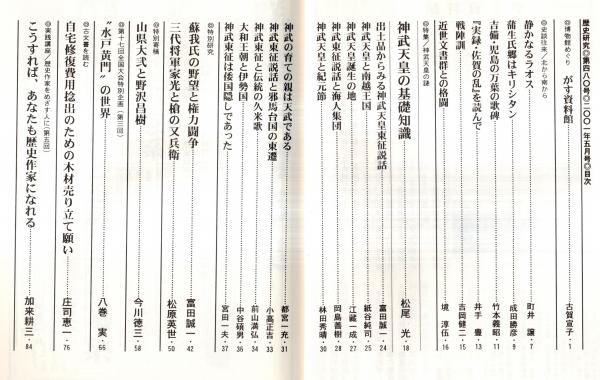 歴史研究◎第四八〇号◎二〇〇一年五月号◎目次
◎博物館めぐり がす資料館 古賀宣子・1
◎史談往来／北から南から
静かなるラオス 町井 譲・7
蒲生氏郷はキリシタン 成田勝彦・9
吉備・児島の万葉の歌碑 竹本義昭・11
『実録・佐賀の乱』を読んで 井手 豊・13
戦陣訓 吉岡健二・15
近世文書群との格闘 境 淳伍・16
◎特集／神武天皇の謎
神武天皇の基礎知識 松尾 光・18
出土品からみる神武天皇東征説話 富田誠一・24
神武天皇と南越王国 紙谷純司・25
神武天皇誕生の地 江藏一成・27
神武東征説話と海人集団 岡島善樹・28
神武天皇と紀元節 林田秀晴・30
神武の育ての親は天武である 都宮一充・31
神武東征説話と邪馬台国の東遷 小高正吉・33
神武東征と伝統の久米歌 前山満弘・34
大和王朝と伊勢国 中谷碩男・36
神武東征は倭国隠しであった 宮田一夫・37
◎特別研究
蘇我氏の野望と権力闘争 富田誠一・42
三代将軍家光と槍の又兵衛 松原英世・50
◎特別寄稿
山県大弐と野沢昌樹 今川徳三・58
◎第十七回全国大会特別企画（第三回）
“水戸黄門”の世界 八巻 実・66
◎古文書を読む
自宅修復費用捻出のための木材売り立て願い 庄司恵一・76
◎実践講座／歴史作家をめざす人に（第五回）
こうすれば、あなたも歴史作家になれる 加来耕三・84